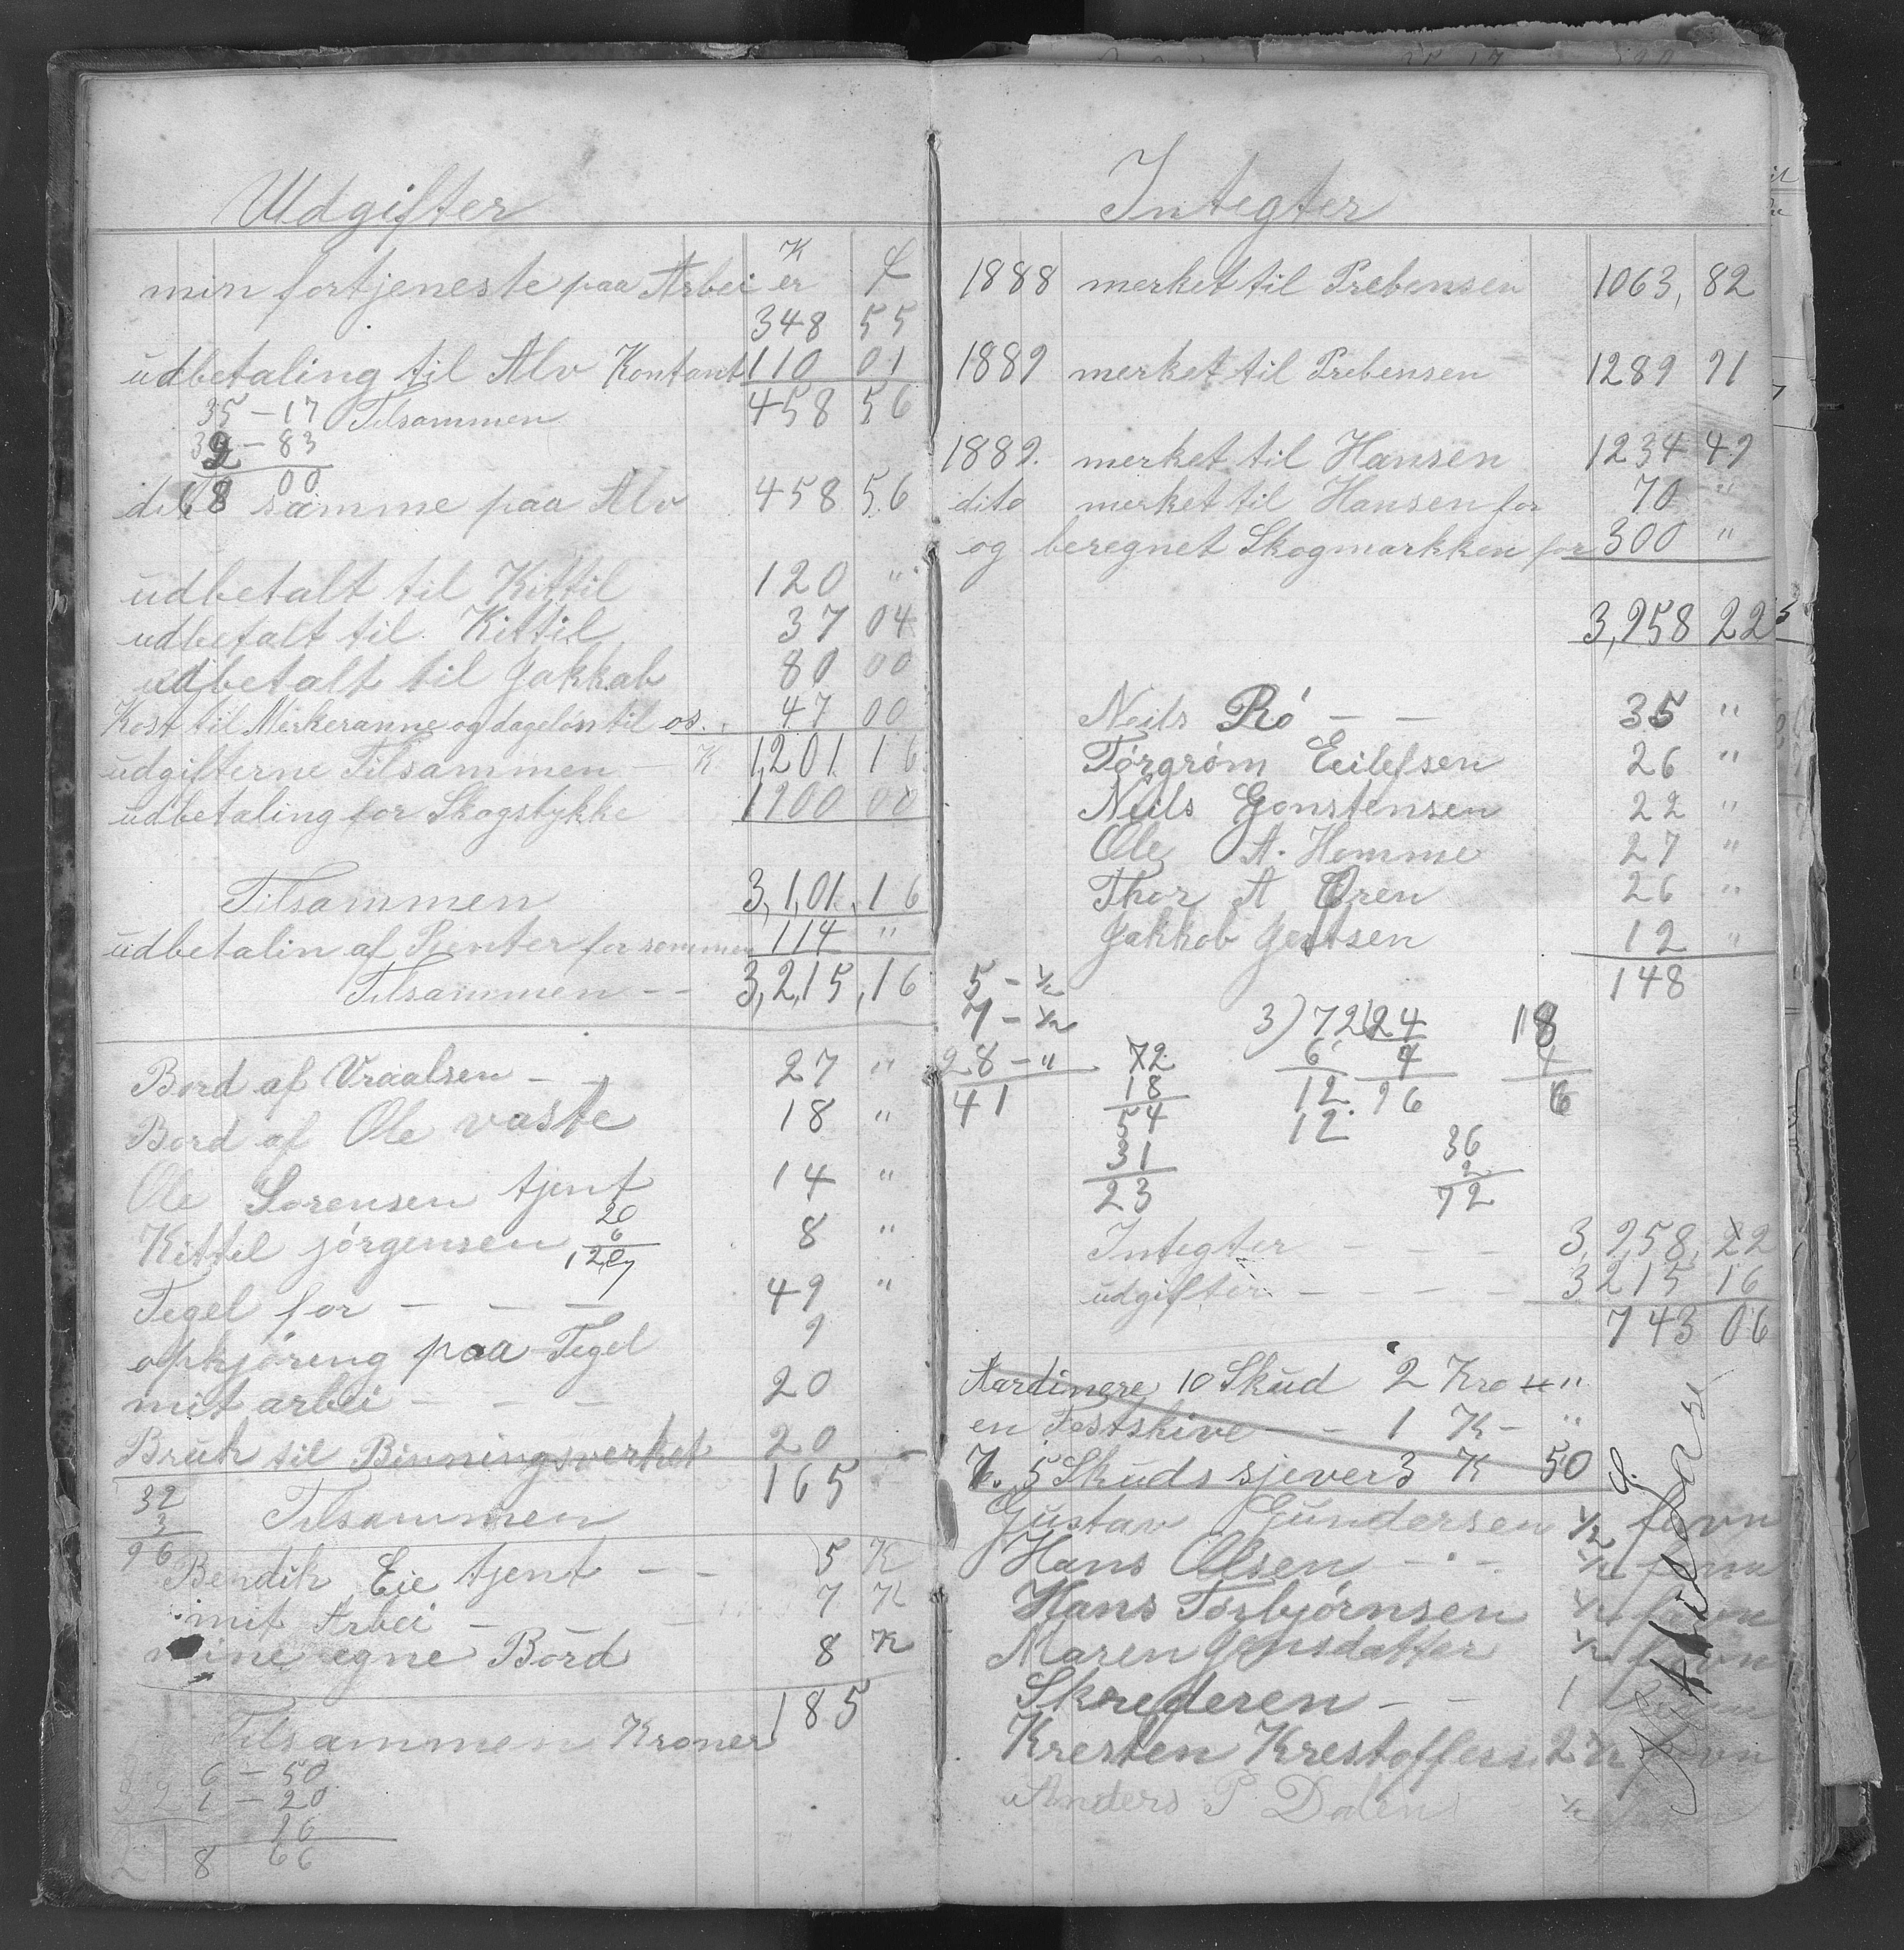 Udgifter
K ø
min fortjeneste paa Arbei er
348 55
udbetaling til Alv Kontant 110 01
35 - 17 Tilsammen 458 56
32 - 83
68 00
dito samme paa Alv 458 56
udbetalt til Kittil 120 "
udbetalt til Kittil 37 04
udbetalt til Jakkab 80 00
Kost til Merkeranne og dageløn til os. 47 00
udgifterne Tilsammen - K. 1,201. 16
udbetaling for Skogstykke 1900 00
Tilsammen 3,1,01. 16
udbetalin af Renter for sommen 114 "
Tilsammen - - 3,2,15, 16
Bord af Vraalsen - - 27 "
Bord af Ole vaste 18 "
Ole Sorensen tjent 14 "
20
6
120
Kittil jórgensen 8 "
Tegel for - - - 49 "
opkjöring paa Tegel 9
mit arbei - - - 20
Bruk til Binningsverket 20
165
32
3
96
Tilsammen
Bendik Eie tjent - - 5 K
mit Arbei - - - 7 K
mine egne Bord 8 K
Tilsammen Kroner 185
6 - 50
1 - 20
16
8 66
Integter
1888 merket til Prebensen 1063, 82
1889 merket til Prebensen 1289 91
1889. merket til Hansen 1234 49
dito merket til Hansen for 70 "
og beregnet Skogmarkken for 300 "
3,958 22
Neils Ró - - 35 "
Tørgrøm Eeilefsen 26 "
Neils Gonstensen 22 "
Ole A. Homme 27 "
Thor A Øren 26 "
Jakkob Jertsen 12 "
148
5 - ½
7 - ½
28 - "
41
3) 72 24
6 4
12. 96
12
18
4
6
72
18
54
31
23
36
2
72
Integter - - - 3,958, 22
udgifter - - - - 3215 16
743 06
Aardinere 10 Skud 2 Kro "
en Festskive - - 1 K - "
7. 5 Skuds sjever 3 K 50 Ø.
Gustav Gundersen ½ favn
Hans Olsen - - - ½ favn
Hans Torbjórnsen ½ favn
Maren Jensdatter ½ favn
Skrederen - - 1 favn
Kresten Krestoffess 2 ½ favn
Anders P. Dalen ½ favn